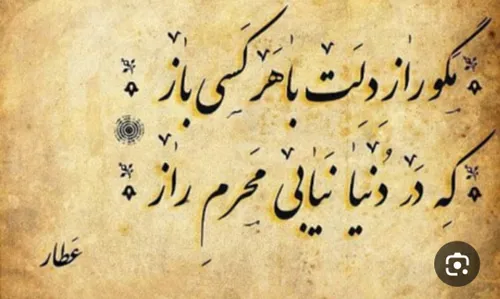 مگو راز دلت با هر کسی باز
که در دنیا نیابی محرم راز
عطار